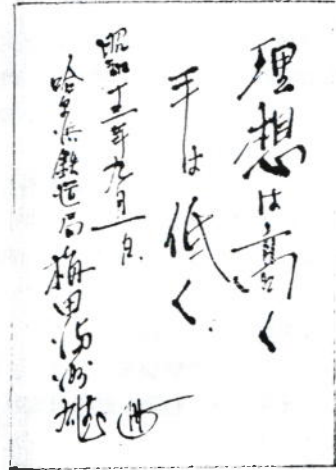 理想は高く
手は低く
昭和十二年九月一日
哈尔浜鉄道局 梅田満洲雄